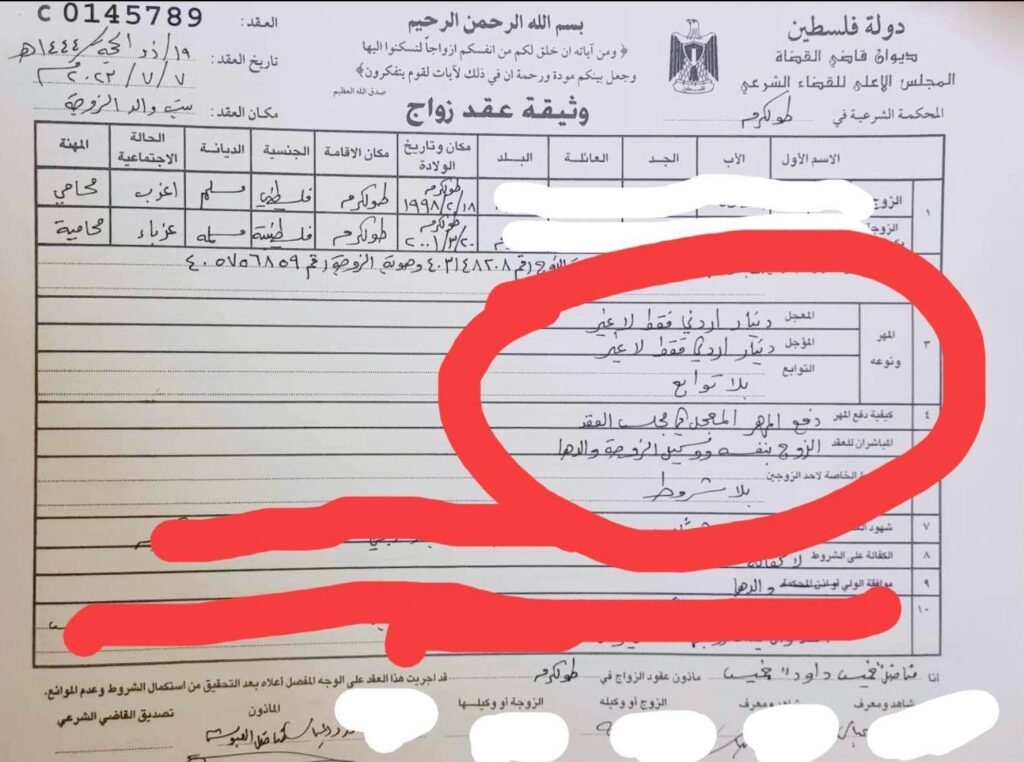 C 0145789
العقد:
بسم الله الرحمن الرحيم
دولة فلسطين
ديوان قاضي القضاة
المجلس الاعلى للقضاء الشرعي
﴿ ومن آياته ان خلق لكم من انفسكم ازواجاً لتسكنوا اليها
وجعل بينكم مودة ورحمة ان في ذلك لآيات لقوم يتفكرون﴾
صدق الله العظيم
تاريخ العقد: ١٩/ذو الحجة/١٤٤٤هـ
٢٠٢٣/٧/٧م
المحكمة الشرعية في طولكرم
وثيقة عقد زواج
مكان العقد: بيت والد الزوجة
الاسم الأول الأب الجد العائلة البلد مكان وتاريخ الولادة مكان الاقامة الجنسية الديانة الحالة الاجتماعية المهنة
١ الزوج طولكرم ١٩٩٨/٢/١٨ طولكرم فلسطيني مسلم اعزب محامي
طولكرم ٢٠٠١/٣/٢٠ طولكرم فلسطينية مسلمة عزباء محامية
رقم ٤٠٣١٤٨٢٠٨ وهوية الزوجة رقم ٤٠٥٧٥٦٨٥٩
٣ المهر ونوعه
المعجل دينار اردني فقط لا غير
المؤجل دينار اردني فقط لا غير
التوابع بلا توابع
٤ كيفية دفع المهر دفع المهر المعجل في مجلس العقد
المباشران للعقد الزوج بنفسه ووكيل الزوجة والدها
الخاصة لاحد الزوجين بلا شروط
٧ شهود
٨ الكفالة على الشروط لا كفالة
٩ موافقة الولي أو اذن المحكمة والدها
١٠
انا مأذون عقود الزواج في طولكرم قد اجريت هذا العقد على الوجه المفصل أعلاه بعد التحقيق من استكمال الشروط وعدم الموانع.
شاهد ومعرف شاهد ومعرف الزوج أو وكيله الزوجة أو وكيلها المأذون تصديق القاضي الشرعي